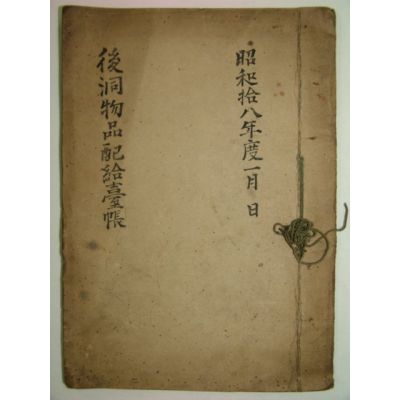 昭和拾八年度一月 日
後洞物品配給臺帳